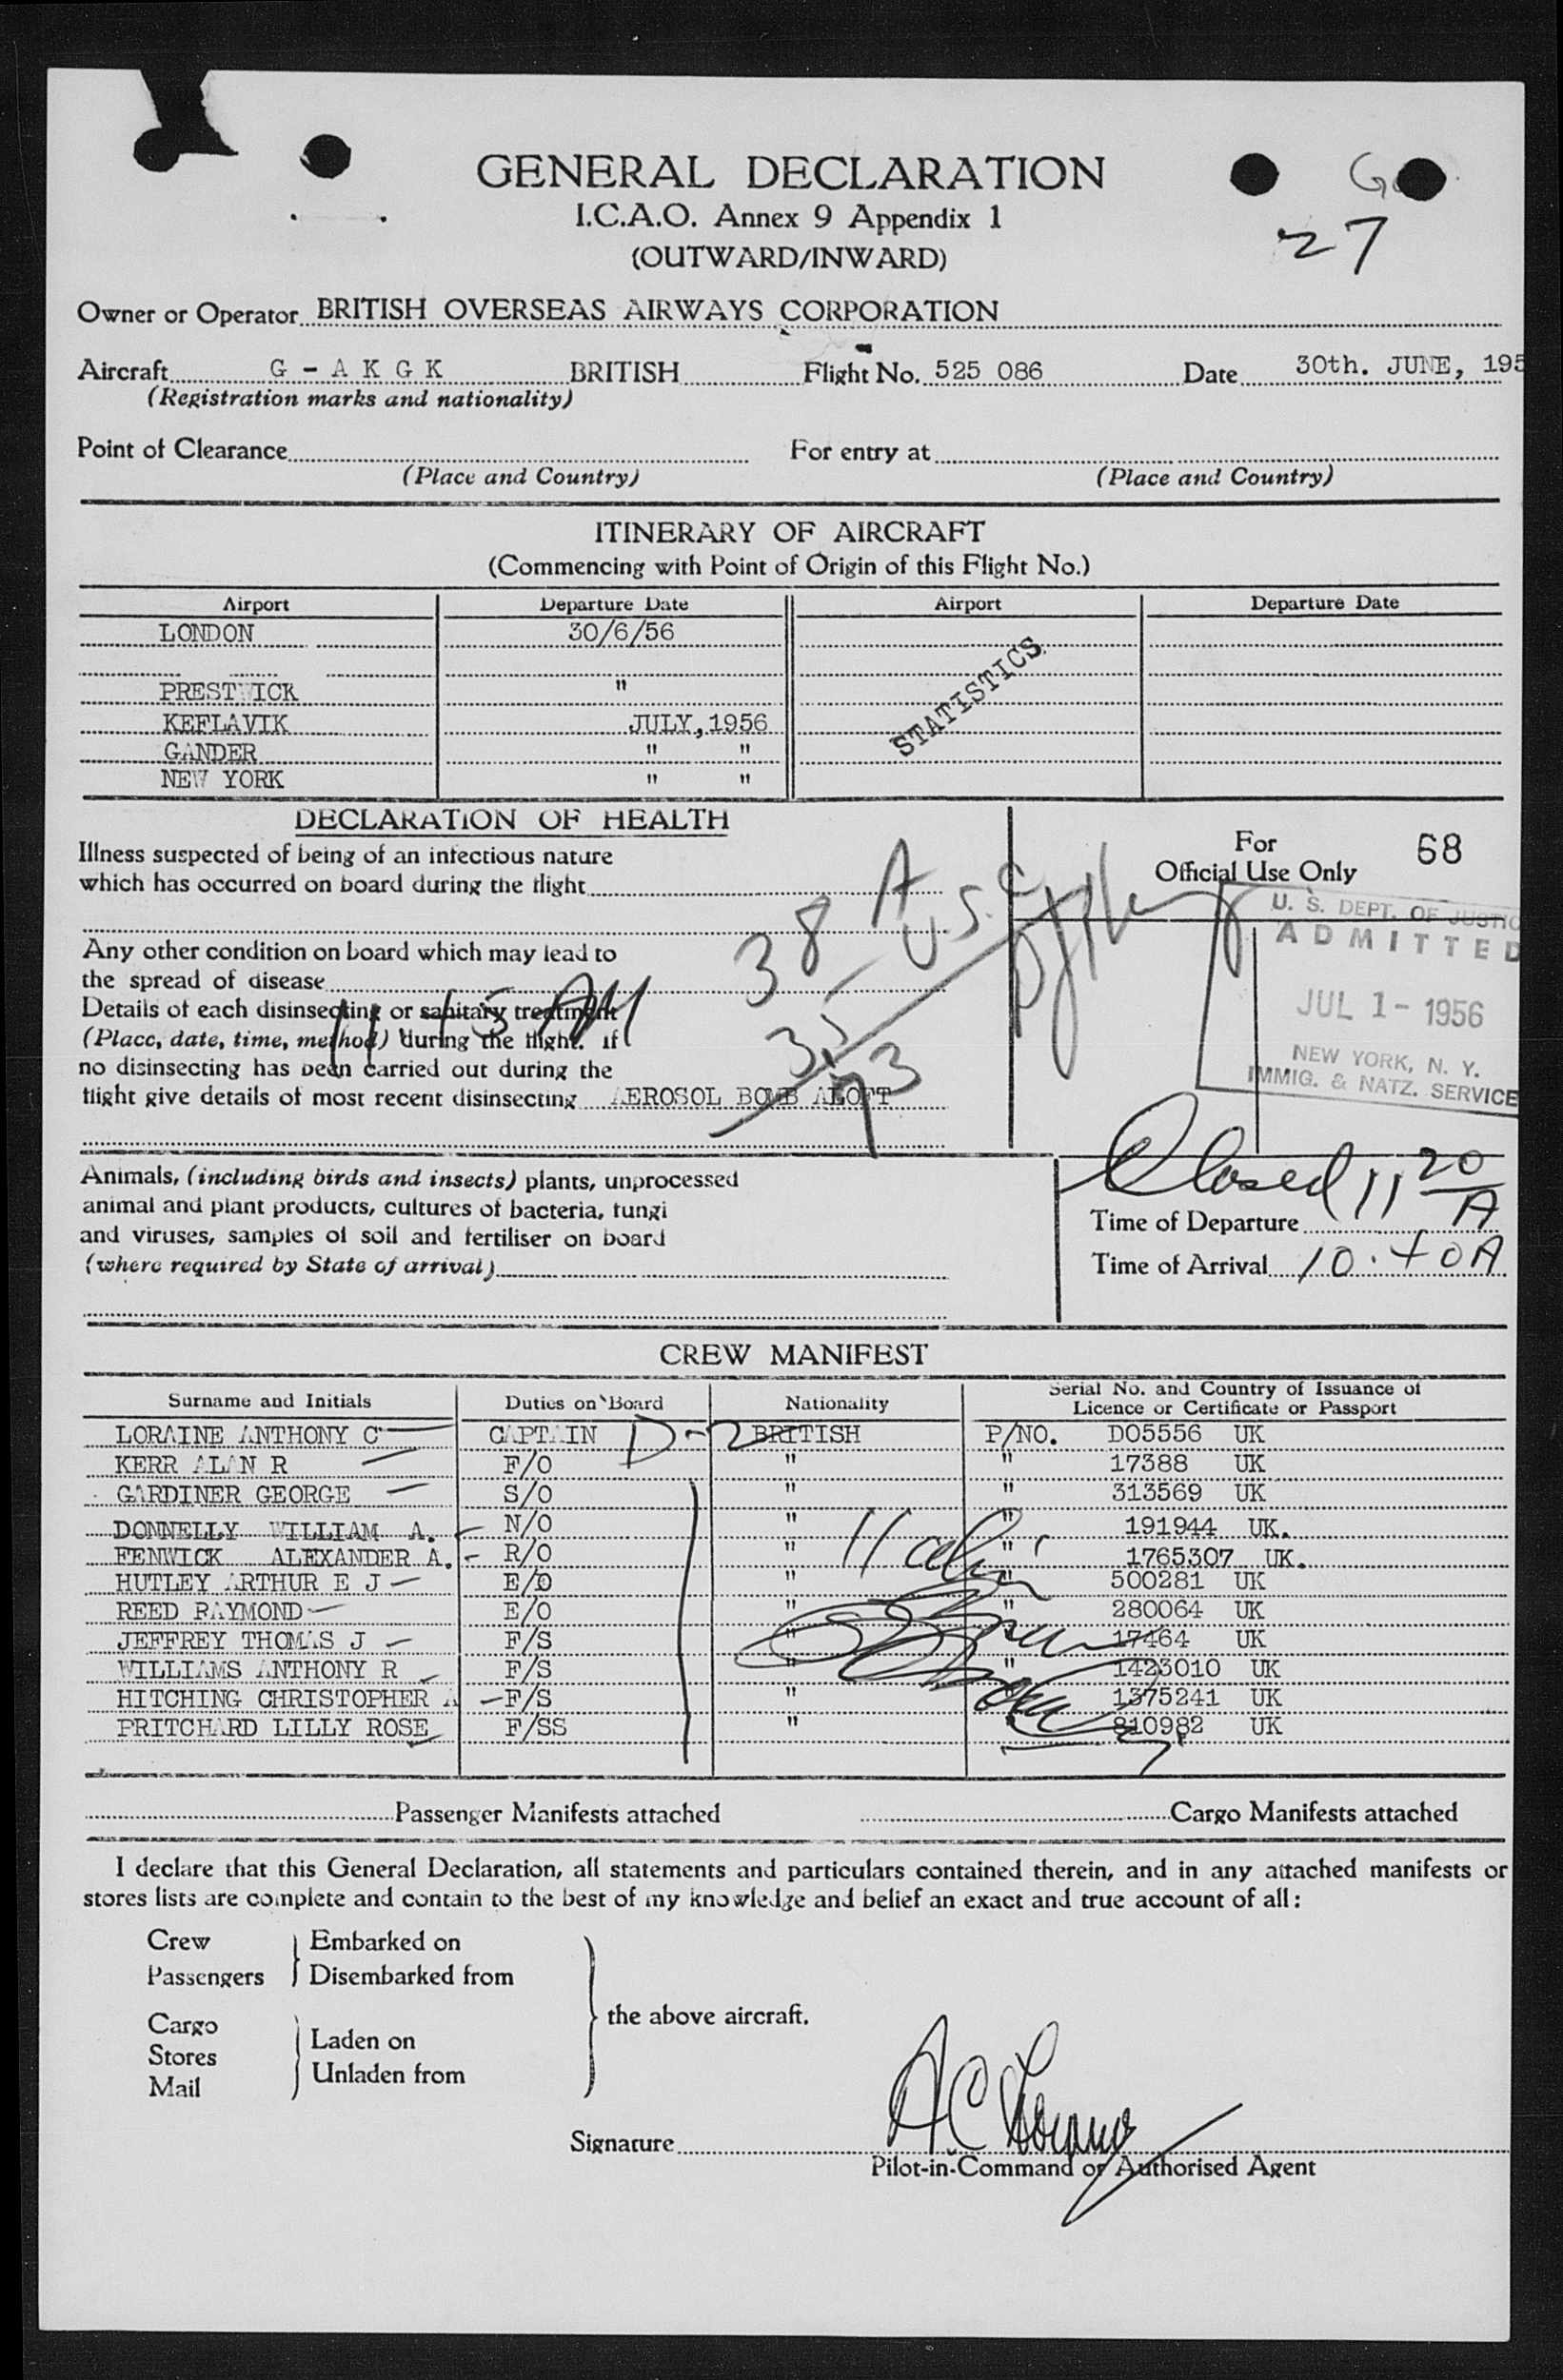 GENERAL DECLARATION
I.C.A.O. Annex 9 Appendix 1
(OUTWARD/INWARD)
27
Owner or Operator BRITISH OVERSEAS AIRWAYS CORPORATION
Aircraft G - A K G K BRITISH Flight No. 525 086 Date 30th. JUNE, 195
(Registration marks and nationality)
Point of Clearance For entry at
(Place and Country) (Place and Country)
ITINERARY OF AIRCRAFT
(Commencing with Point of Origin of this Flight No.)
Airport Departure Date Airport Departure Date
LONDON 30/6/56
PRESTWICK "
KEFLAVIK JULY, 1956
GANDER " "
NEW YORK " "
STATISTICS
DECLARATION OF HEALTH
Illness suspected of being of an infectious nature
which has occurred on board during the flight
Any other condition on board which may lead to
the spread of disease
Details of each disinsecting or sanitary treatment
(Place, date, time, method) during the flight. If
no disinsecting has been carried out during the
flight give details of most recent disinsecting AEROSOL BOMB ALOFT
11 45 AM
38 A
35 U.S.C
73
For
Official Use Only
68
U. S. DEPT. OF JUSTIC
ADMITTED
JUL 1 - 1956
NEW YORK, N. Y.
IMMIG. & NATZ. SERVICE
Animals, (including birds and insects) plants, unprocessed
animal and plant products, cultures of bacteria, fungi
and viruses, samples of soil and fertiliser on board
(where required by State of arrival)
Closed 11 20 A
Time of Departure
Time of Arrival 10.40A
CREW MANIFEST
Surname and Initials Duties on Board Nationality Serial No. and Country of Issuance of
Licence or Certificate or Passport
LORAINE ANTHONY C CAPTAIN D-2 BRITISH P/NO. DO5556 UK
KERR ALAN R F/O " " 17388 UK
GARDINER GEORGE S/O " " 313569 UK
DONNELLY WILLIAM A. N/O " " 191944 UK.
FENWICK ALEXANDER A. R/O " " 1765307 UK.
HUTLEY ARTHUR E J E/O " " 500281 UK
REED RAYMOND E/O " " 280064 UK
JEFFREY THOMAS J F/S " 17464 UK
WILLIAMS ANTHONY R F/S " " 1423010 UK
HITCHING CHRISTOPHER A F/S " 1375241 UK
PRITCHARD LILLY ROSE F/SS " " 810982 UK
Passenger Manifests attached Cargo Manifests attached
I declare that this General Declaration, all statements and particulars contained therein, and in any attached manifests or
stores lists are complete and contain to the best of my knowledge and belief an exact and true account of all:
Crew Embarked on
Passengers Disembarked from
the above aircraft.
Cargo
Stores Laden on
Mail Unladen from
Signature A C Loraine
Pilot-in-Command or Authorised Agent